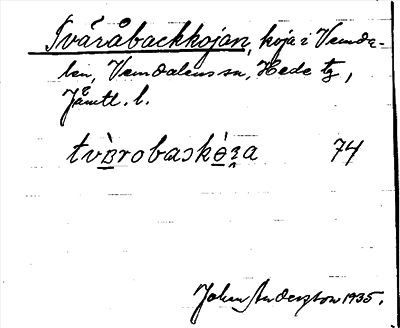 Tvåråbackkojan, koja i Vemda-
len, Vemdalens sn, Hede tg,
Jämtl. l.
tvɒ̀robaskɵ̀ʒ̯a 74
John Anderzton 1935.